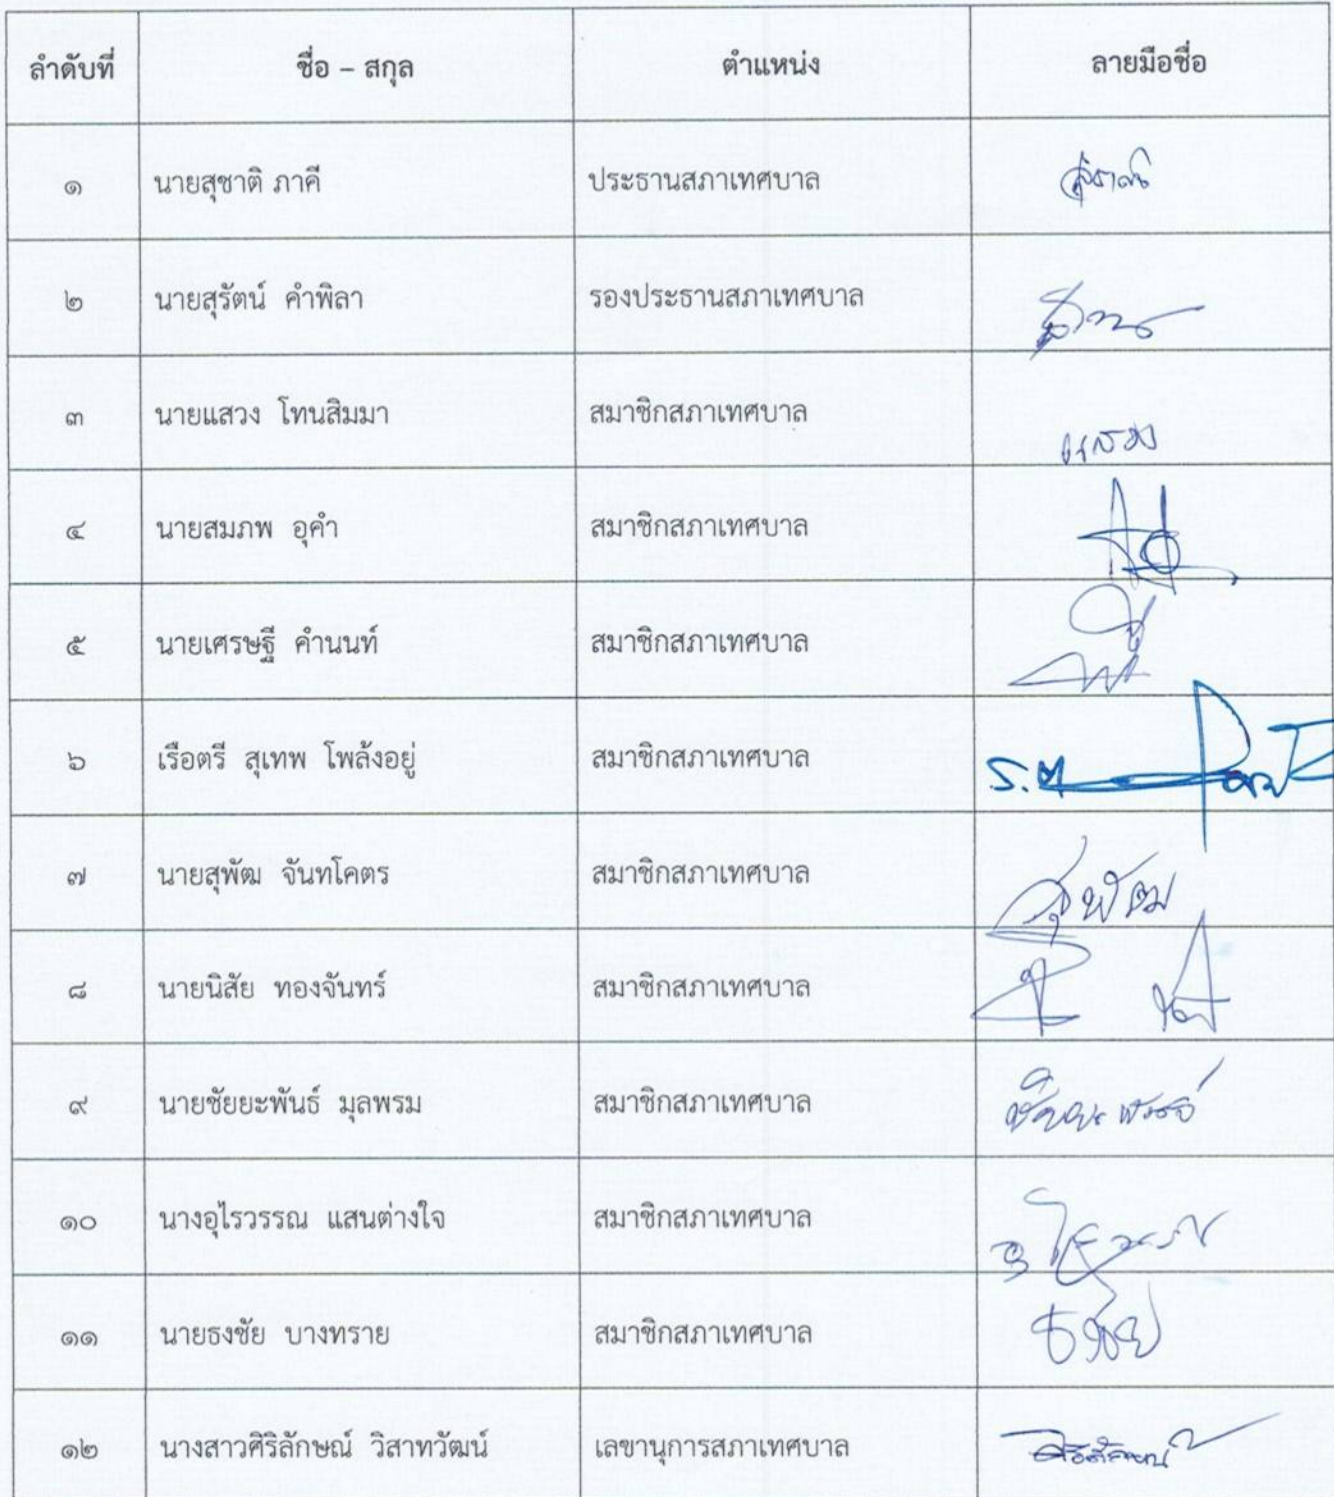 ลำดับที่ ชื่อ – สกุล ตำแหน่ง ลายมือชื่อ
๑ นายสุชาติ ภาคี ประธานสภาเทศบาล
๒ นายสุรัตน์ คำพิลา รองประธานสภาเทศบาล
๓ นายแสวง โทนสิมมา สมาชิกสภาเทศบาล แสวง
๔ นายสมภพ อุคำ สมาชิกสภาเทศบาล
๕ นายเศรษฐี คำนนท์ สมาชิกสภาเทศบาล
๖ เรือตรี สุเทพ โพล้งอยู่ สมาชิกสภาเทศบาล ร.ต
๗ นายสุพัฒ จันทโคตร สมาชิกสภาเทศบาล สุพัฒ
๘ นายนิสัย ทองจันทร์ สมาชิกสภาเทศบาล
๙ นายชัยยะพันธ์ มุลพรม สมาชิกสภาเทศบาล
๑๐ นางอุไรวรรณ แสนต่างใจ สมาชิกสภาเทศบาล
๑๑ นายธงชัย บางทราย สมาชิกสภาเทศบาล ธงชัย
๑๒ นางสาวศิริลักษณ์ วิสาทวัฒน์ เลขานุการสภาเทศบาล ศิริลักษณ์